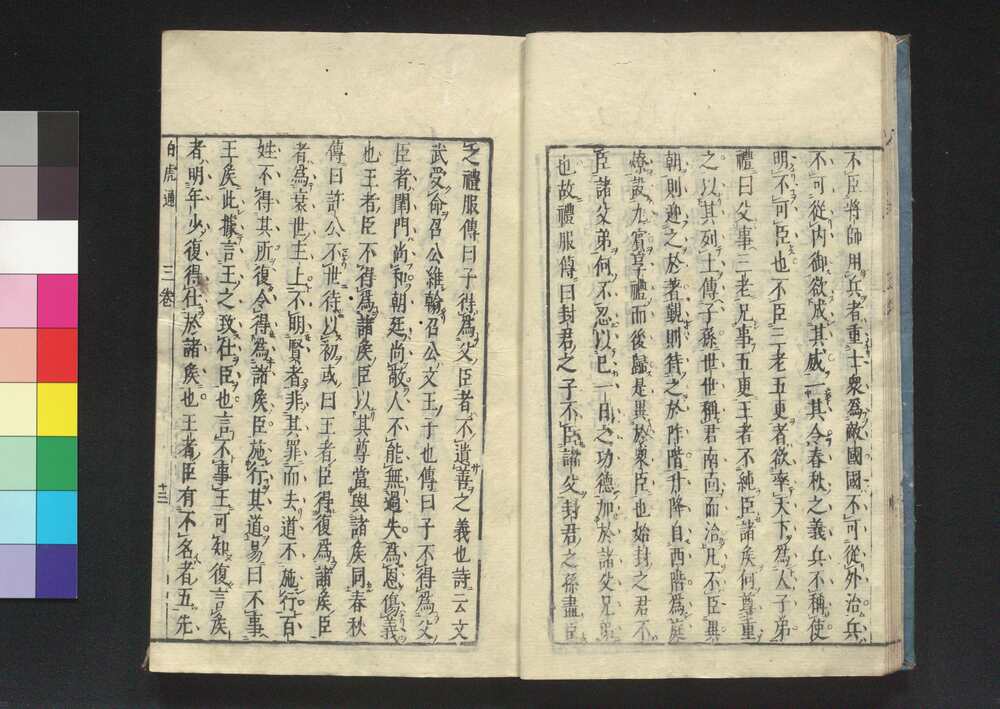 不臣將師用兵者重士衆爲敵國國不可從外治兵
不可從内御欲成其威一其令春秋之義兵不稱使
明不可臣也不臣三老五更者欲率天下爲人子弟
禮曰父事三老兄事五更王者不純臣諸侯何尊重
之以其列土傳子孫世世稱君南向而治凡不臣異
朝則迎之於著覲則待之於阼階升降自西階爲庭
燎設九賓享禮而後歸是異於衆臣也始封之君不
臣諸父弟何不忍以己一日之功德加於諸父兄弟
也故禮服傳曰封君之子不臣諸父封君之孫盡臣
之禮服傳曰子得爲父臣者不遺善之義也詩云文
武受命召公維翰召公文王子也傳曰子不得爲父
臣者閨門尚和朝廷尚敬人不能無過失爲恩傷義
也王者臣不得爲諸侯臣以其尊當與諸侯同春秋
傳曰許公不世待以初或曰王者臣得復爲諸侯臣
者爲衰世主上不明賢者非其罪而去道不施行百
姓不得其所復令得爲諸侯臣施行其道易曰不事
王侯此據言王之致仕臣也言不事王可知復言侯
者明年少復得仕於諸侯也。王者臣有不名者五先
白虎通 三卷 十三